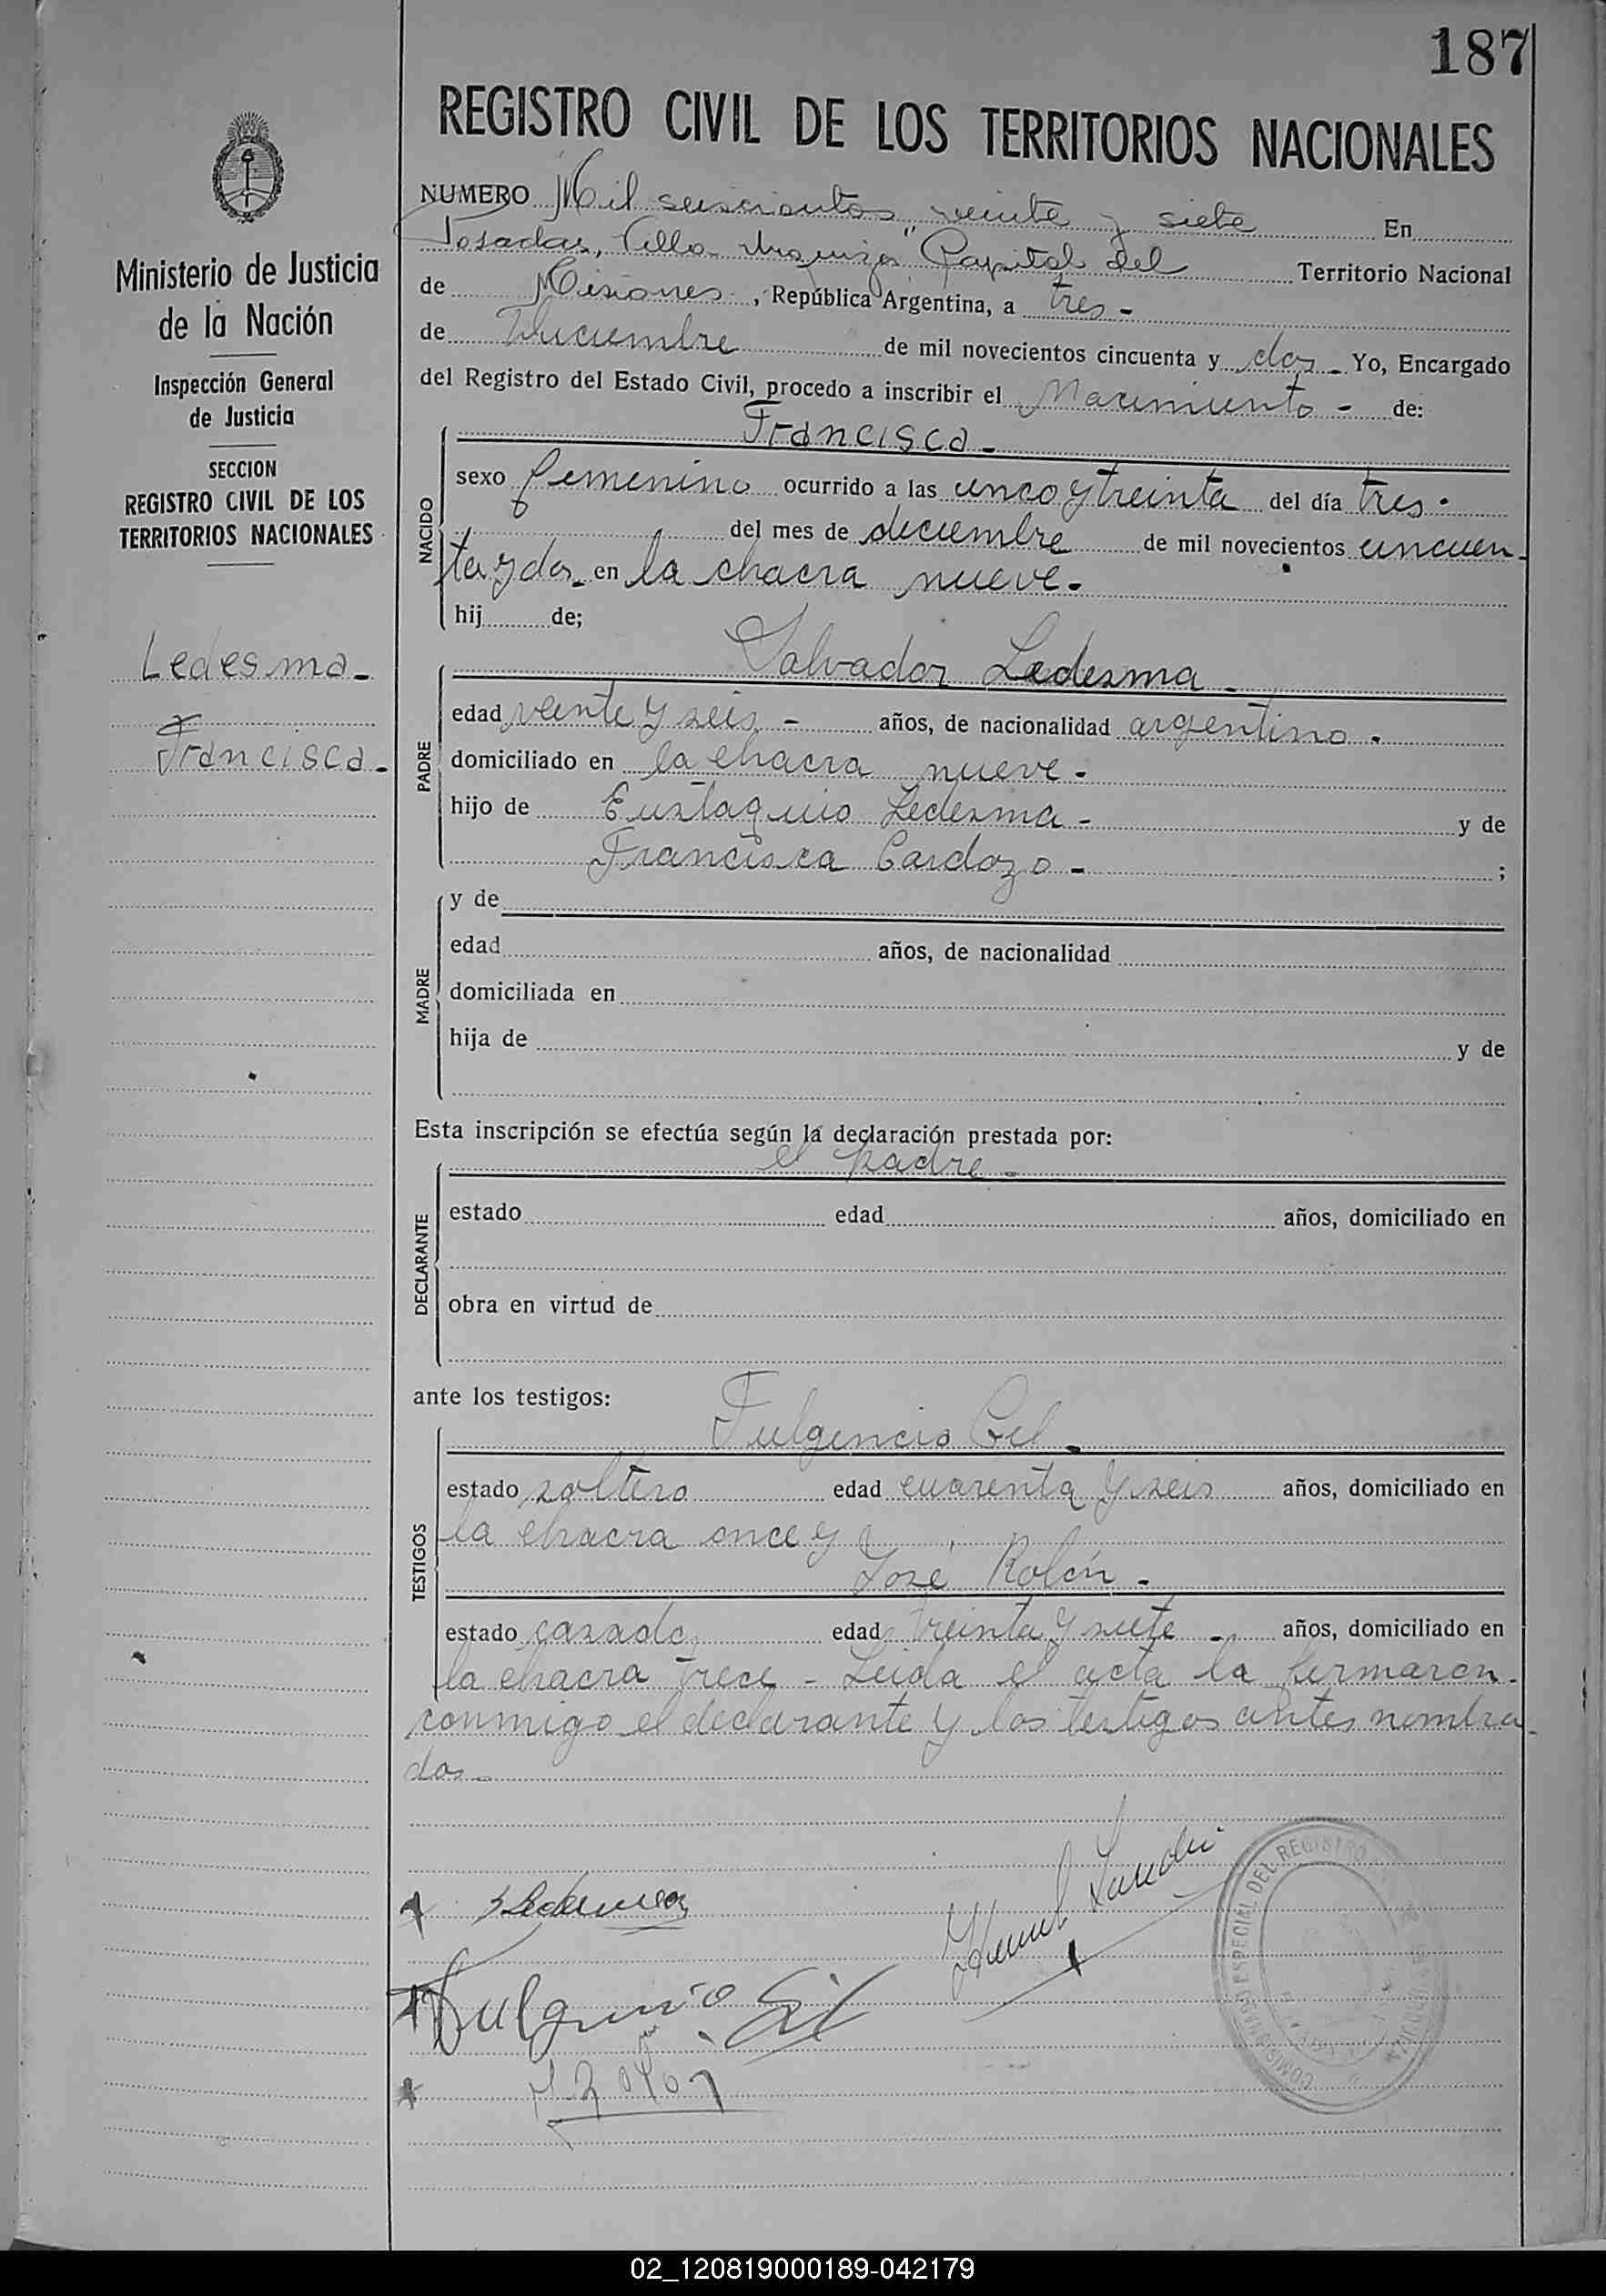 187
REGISTRO CIVIL DE LOS TERRITORIOS NACIONALES
Ministerio de Justicia
de la Nación
Inspección General
de Justicia
SECCION
REGISTRO CIVIL DE LOS
TERRITORIOS NACIONALES
Ledesma-
Francisca-
NUMERO Mil seiscientos veinte y siete En
Posadas, Villa Urquiza" Capital del Territorio Nacional
de Misiones, República Argentina, a tres-
de Diciembre de mil novecientos cincuenta y dos- Yo, Encargado
del Registro del Estado Civil, procedo a inscribir el Nacimiento- de:
Francisca-
NACIDO
sexo femenino ocurrido a las cinco y treinta del día tres-
del mes de diciembre de mil novecientos cincuen-
ta y dos- en la chacra nueve.
hij de;
Salvador Ledesma-
PADRE
edad veinte y seis- años, de nacionalidad argentino.
domiciliado en la chacra nueve-
hijo de Eustaquio Ledesma- y de
Francisca Cardozo- ;
MADRE
y de
edad años, de nacionalidad
domiciliada en
hija de y de
Esta inscripción se efectúa según la declaración prestada por:
el padre-
DECLARANTE
estado edad años, domiciliado en
obra en virtud de
ante los testigos:
Fulgencio Gil-
TESTIGOS
estado soltero edad cuarenta y seis años, domiciliado en
la chacra once y
José Rolón-
estado casado edad treinta y siete- años, domiciliado en
la chacra trece- Leida el acta la firmaron-
conmigo el declarante y los testigos antes nombra-
dos-
SLedesma
Fulgencio Gil
DEL REGISTRO
02_120819000189-042179